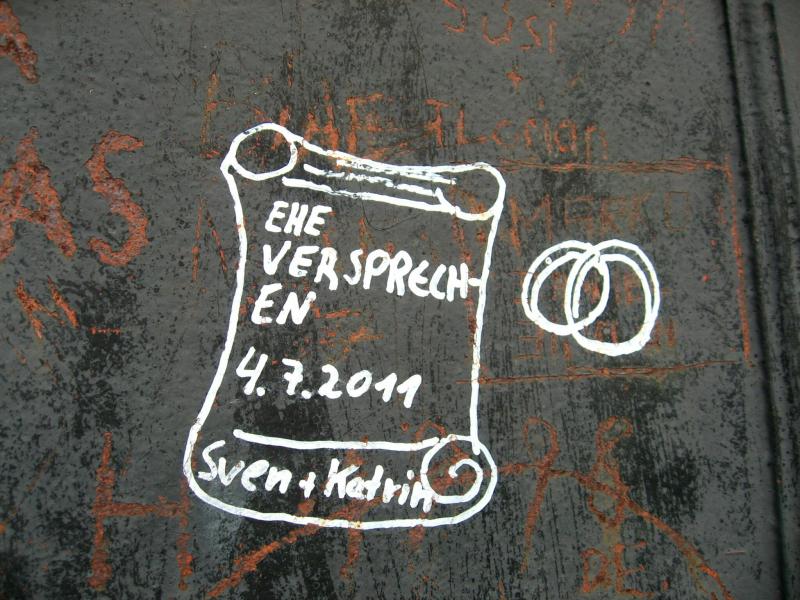 SUSI
Florian
AS
EHE
VERSPRECH-
EN
4.7.2011
Sven + Katrin
DE